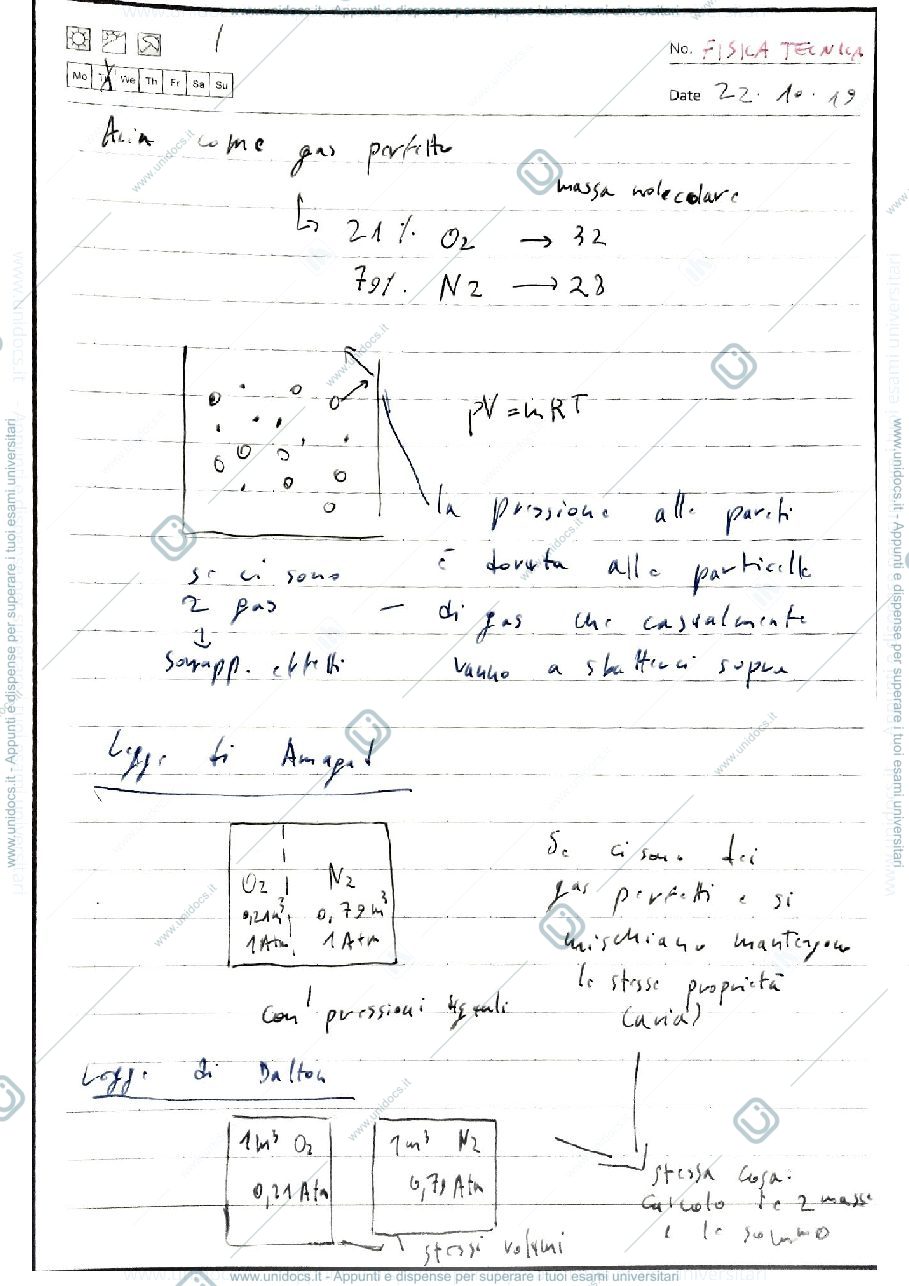 www.unidocs.it - Appunti e dispense per superare i tuoi esami universitari
1
No. FISICA TECNICA
Mo Tu We Th Fr Sa Su
Date 22. 10. 19
Aria come gas perfetto
massa molecolare
↳ 21% O2 → 32
79% N2 → 28
pV = mRT
la pressione alle pareti
è dovuta alle particelle
di gas che casualmente
vanno a sbatterci sopra
se ci sono
2 gas
↓
sovrapp. effetti
Legge di Amagat
O2 N2
0,21m³ 0,79m³
1Atm 1Atm
con pressioni uguali
Se ci sono dei
gas perfetti e si
mischiano mantengono
le stesse proprietà
(aria)
Legge di Dalton
1m³ O2
0,21Atm
1m³ N2
0,79Atm
stessi volumi
stessa cosa.
Calcolo le 2 masse
e le sommo
www.unidocs.it - Appunti e dispense per superare i tuoi esami universitari